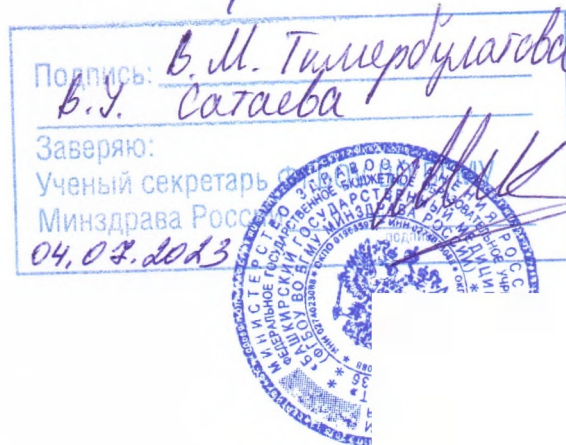 Подпись: В. М. Тимербулатова
В. У. Сатаева
Заверяю:
Ученый секретарь
Минздрава России
04.07.2023
МИНИСТЕРСТВО ЗДРАВООХРАНЕНИЯ РОСС
ФЕДЕРАЛЬНОЕ ГОСУДАРСТВЕННОЕ БЮДЖЕТНОЕ
БАШКИРСКИЙ ГОСУДАРСТВЕННЫЙ МЕДИЦИ
(ФГБОУ ВО БГМУ МИНЗДРАВА РОССИИ)